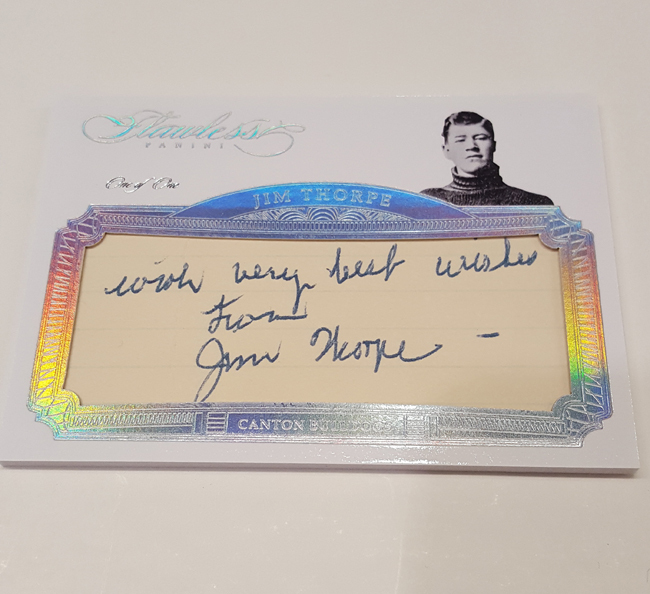 Flawless
PANINI
One of One
JIM THORPE
with very best wishes
from
Jim Thorpe -
CANTON BULLDOGS